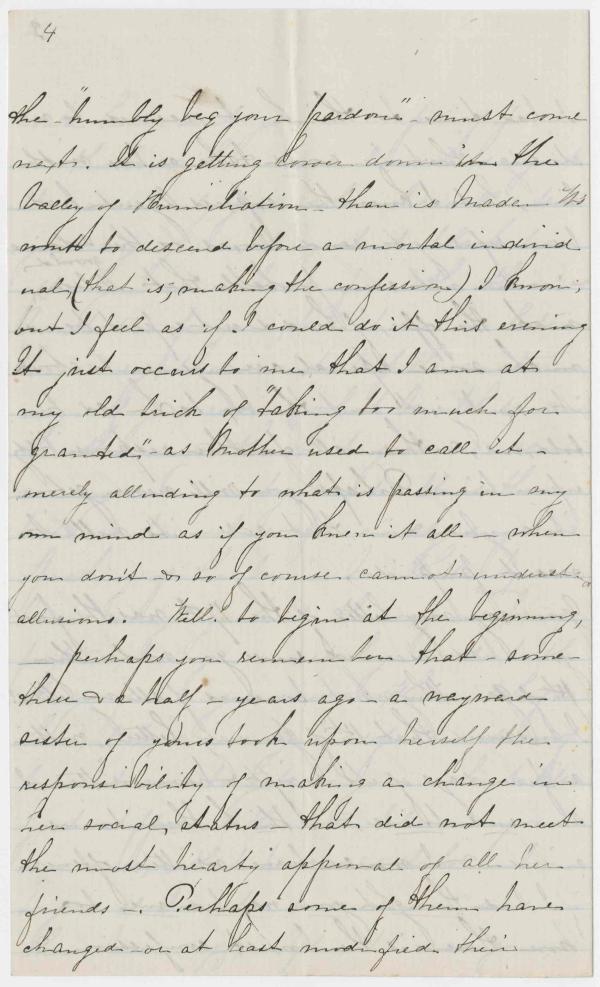 4
the "humbly beg your pardon" - must come
next. It is getting lower down in the
Valley of Humiliation - than is Madam
wont to descend before a mortal individ
ual, (that is, making the confession) I know,
but I feel as if I could do it this evening
It just occurs to me that I am at
my old trick of "taking too much for
granted" - as Mother used to call it -
merely alluding to what is passing in my
own mind as if you knew it all - when
you don't & so of course cannot
allusions. Well. to begin at the beginning,
- perhaps you remember that - some -
three & a half - years ago - a wayward
sister of yours took upon herself the
responsibility of making a change in
her social, status - that did not meet
the most hearty approval of all her
friends -. Perhaps some of them have
changed - or at least modified their